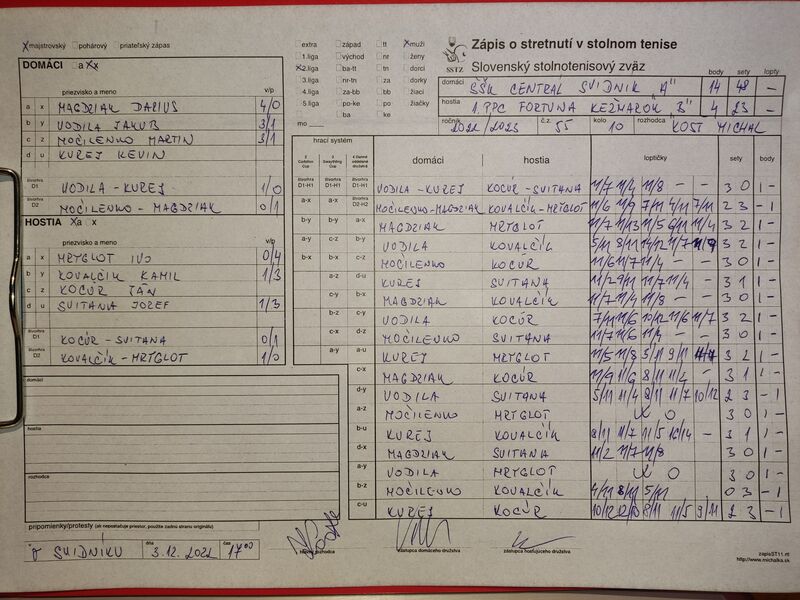 majstrovský pohárový priateľský zápas
DOMÁCI a x
priezvisko a meno v/p
a x MAGDZIAK DARIUS 4/0
b y VODILA JAKUB 3/1
c z MOČILENKO MARTIN 3/1
d u KUREJ KEVIN
štvorhra D1 VODILA - KUREJ 1/0
štvorhra D2 MOČILENKO - MAGDZIAK 0/1
HOSTIA a x
priezvisko a meno v/p
a x MRTGLOT IVO 0/4
b y KOVALČÍK KAMIL 1/3
c z KOCÚR JÁN
d u SVITANA JOZEF 1/3
štvorhra D1 KOCÚR - SVITANA 0/1
štvorhra D2 KOVALČÍK - MRTGLOT 1/0
domáci
hostia
rozhodca
pripomienky/protesty (ak nepostačuje priestor, použite zadnú stranu originálu)
V SVIDNÍKU dňa 3.12.2022 čas 17 00
extra západ tt muži
1.liga východ nr ženy
2.liga ba-tt tn dorci
3.liga nr-tn za dorky
4.liga za-bb bb žiaci
5.liga po-ke po žiačky
ba ke
mo
Zápis o stretnutí v stolnom tenise
SSTZ Slovenský stolnotenisový zväz
body sety lopty
domáci ŠŠK CENTRAL SVIDNÍK "A" 14 48 -
hostia 1. PPC FORTUNA KEŽMAROK "B" 4 23 -
ročník 2022/2023 č.z. 55 kolo 10 rozhodca KOST MICHAL
hrací systém domáci hostia loptičky sety body
D1-H1 D1-H1 D1-H1 VODILA - KUREJ KOCÚR - SVITANA 11/7 11/4 11/8 - - 3 0 1 -
a-x a-x D2-H2 MOČILENKO - MAGDZIAK KOVALČÍK - MRTGLOT 11/6 11/9 7/11 4/11 7/11 2 3 - 1
b-y b-y a-x MAGDZIAK MRTGLOT 11/7 11/13 11/5 6/11 11/4 3 2 1 -
a-y c-z b-y VODILA KOVALČÍK 5/11 8/11 14/12 11/7 3 2 1 -
b-x b-x c-z MOČILENKO KOCÚR 11/6 11/7 11/4 - - 3 0 1 -
a-z d-u KUREJ SVITANA 11/2 9/11 11/7 11/4 - 3 1 1 -
c-y b-x MAGDZIAK KOVALČÍK 11/7 11/4 11/8 - - 3 0 1 -
b-z c-y VODILA KOCÚR 7/11 11/6 10/12 11/6 11/7 3 2 1 -
c-x d-z MOČILENKO SVITANA 11/7 11/6 11/4 - - 3 0 1 -
a-y a-u KUREJ MRTGLOT 11/5 11/8 5/11 9/11 3 2 1 -
c-x MAGDZIAK KOCÚR 11/9 11/6 8/11 11/4 - 3 1 1 -
d-y VODILA SVITANA 5/11 11/4 8/11 11/7 10/12 2 3 - 1
a-z MOČILENKO MRTGLOT W O 3 0 1 -
b-u KUREJ KOVALČÍK 11/7 11/5 16/14 - 3 1 1 -
d-x MAGDZIAK SVITANA 11/2 11/7 11/8 3 0 1 -
a-y VODILA MRTGLOT W O 3 0 1 -
b-z MOČILENKO KOVALČÍK 4/11 8/11 5/11 0 3 - 1
c-u KUREJ KOCÚR 8/11 11/5 9/11 2 3 - 1
zástupca domáceho družstva zástupca hosťujúceho družstva
zapisST11.rtf
http://www.michalka.sk